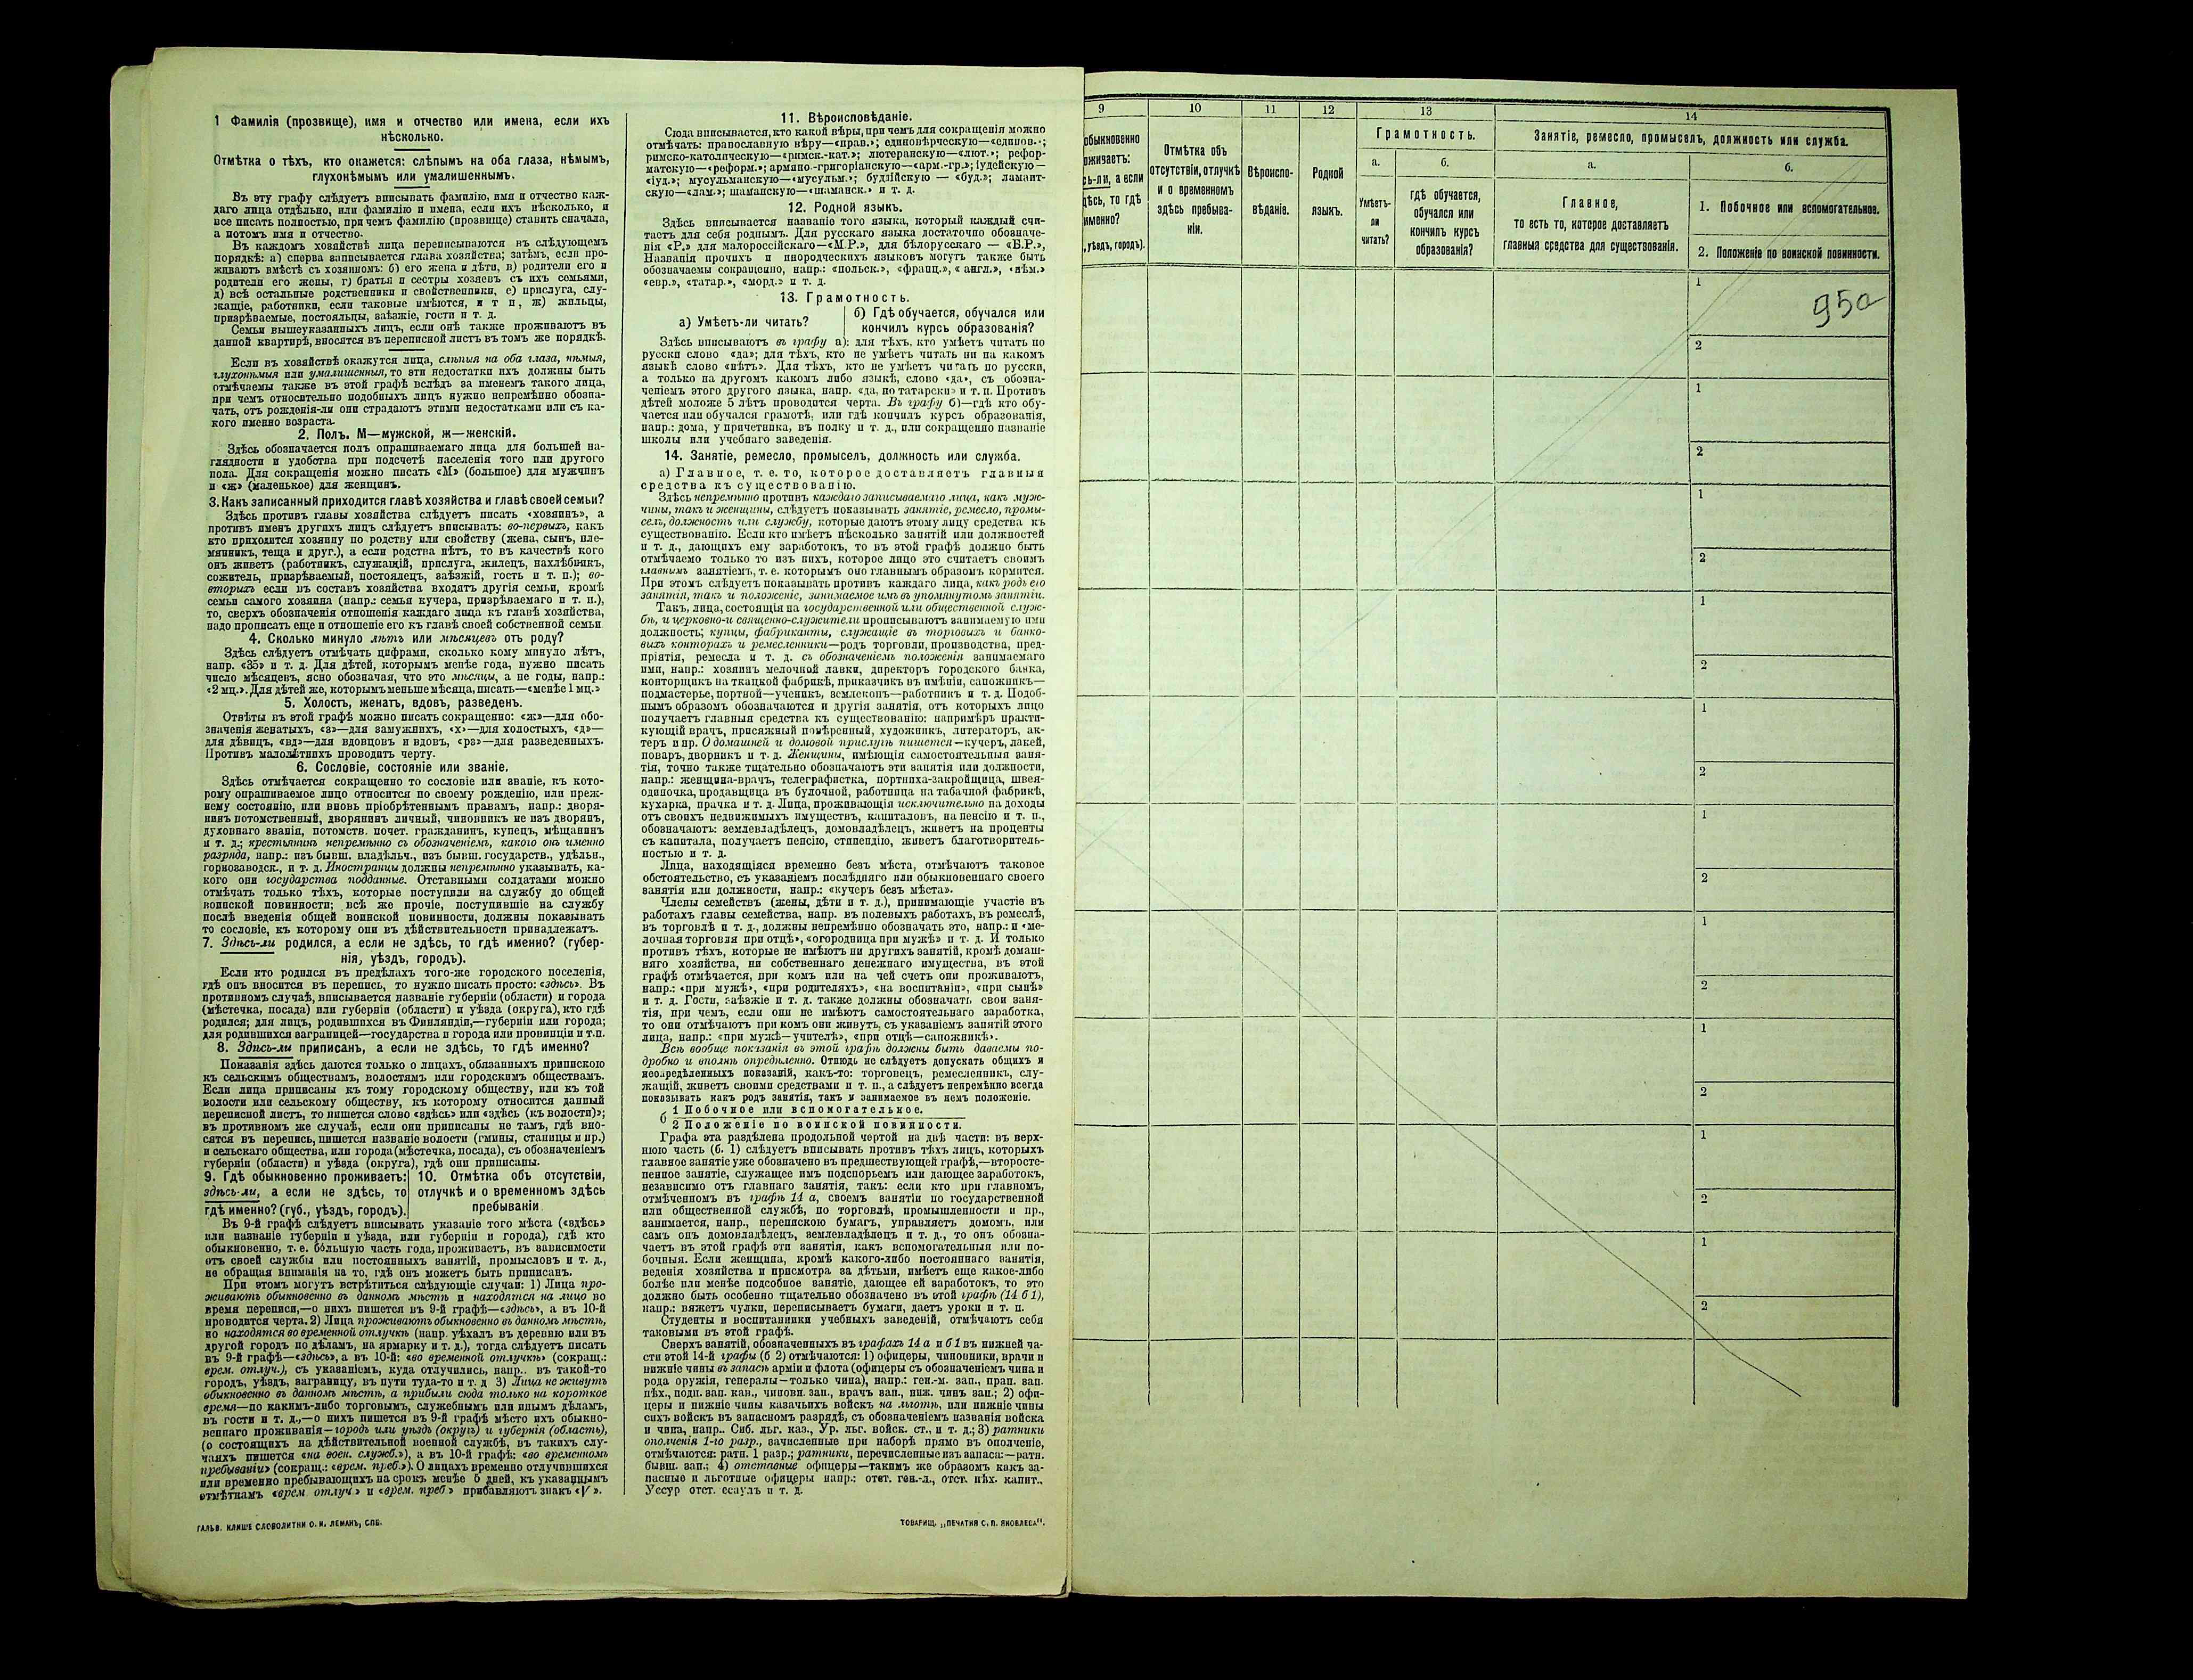 1 Фамилія (прозвище), имя и отчество или имена, если ихъ
нѣсколько.
Отмѣтка о тѣхъ, кто окажется: слѣпымъ на оба глаза, нѣмымъ,
глухонѣмымъ или умалишеннымъ.
Въ эту графу слѣдуетъ вписывать фамилію, имя и отчество каж-
даго лица отдѣльно, или фамилію и имена, если ихъ нѣсколько, и
все писать полностью, при чемъ фамилію (прозвище) ставить сначала,
а потомъ имя и отчество.
Въ каждомъ хозяйствѣ лица переписываются въ слѣдующемъ
порядкѣ: а) сперва записывается глава хозяйства; затѣмъ, если про-
живаютъ вмѣстѣ съ хозяиномъ: б) его жена и дѣти, в) родители его и
родители его жены, г) братья и сестры хозяевъ съ ихъ семьями,
д) всѣ остальные родственники и свойственники, е) прислуга, слу-
жащіе, работники, если таковые имѣются, и т п, ж) жильцы,
призрѣваемые, постояльцы, заѣзжіе, гости и т. д.
Семьи вышеуказанныхъ лицъ, если онѣ также проживаютъ въ
данной квартирѣ, вносятся въ переписной листъ въ томъ же порядкѣ.
Если въ хозяйствѣ окажутся лица, слѣпыя на оба глаза, нѣмыя,
глухонѣмыя или умалишенныя, то эти недостатки ихъ должны быть
отмѣчаемы также въ этой графѣ вслѣдъ за именемъ такого лица,
при чемъ относительно подобныхъ лицъ нужно непремѣнно обозна-
чать, отъ рожденія-ли они страдаютъ этими недостатками или съ ка-
кого именно возраста.
2. Полъ. М—мужской, ж—женскій.
Здѣсь обозначается полъ опрашиваемаго лица для большей на-
глядности и удобства при подсчетѣ населенія того или другого
пола. Для сокращенія можно писать «М» (большое) для мужчинъ
и «ж» (маленькое) для женщинъ.
3. Какъ записанный приходится главѣ хозяйства и главѣ своей семьи?
Здѣсь противъ главы хозяйства слѣдуетъ писать «хозяинъ», а
противъ именъ другихъ лицъ слѣдуетъ вписывать: во-первыхъ, какъ
кто приходится хозяину по родству или свойству (жена, сынъ, пле-
мянникъ, теща и друг.), а если родства нѣтъ, то въ качествѣ кого
онъ живетъ (работникъ, служащій, прислуга, жилецъ, нахлѣбникъ,
сожитель, призрѣваемый, постоялецъ, заѣзжій, гость и т. п.); во-
вторыхъ если въ составъ хозяйства входятъ другія семьи, кромѣ
семьи самого хозяина (напр.: семья кучера, призрѣваемаго и т. п.),
то, сверхъ обозначенія отношенія каждаго лица къ главѣ хозяйства,
надо прописать еще и отношеніе его къ главѣ своей собственной семьи.
4. Сколько минуло лѣтъ или мѣсяцевъ отъ роду?
Здѣсь слѣдуетъ отмѣчать цифрами, сколько кому минуло лѣтъ,
напр. «35» и т. д. Для дѣтей, которымъ менѣе года, нужно писать
число мѣсяцевъ, ясно обозначая, что это мѣсяцы, а не годы, напр.:
«2 мц.». Для дѣтей же, которымъ меньше мѣсяца, писать—«менѣе 1 мц.»
5. Холостъ, женатъ, вдовъ, разведенъ.
Отвѣты въ этой графѣ можно писать сокращенно: «ж»—для обо-
значенія женатыхъ, «з»—для замужнихъ, «х»—для холостыхъ, «д»—
для дѣвицъ, «вд»—для вдовцовъ и вдовъ, «рз»—для разведенныхъ.
Противъ малолѣтнихъ проводить черту.
6. Сословіе, состояніе или званіе.
Здѣсь отмѣчается сокращенно то сословіе или званіе, къ кото-
рому опрашиваемое лицо относится по своему рожденію, или преж-
нему состоянію, или вновь пріобрѣтеннымъ правамъ, напр.: дворя-
нинъ потомственный, дворянинъ личный, чиновникъ не изъ дворянъ,
духовнаго званія, потомств. почет. гражданинъ, купецъ, мѣщанинъ
и т. д.; крестьянинъ непремѣнно съ обозначеніемъ, какого онъ именно
разряда, напр.: изъ бывш. владѣльч., изъ бывш. государств., удѣльн.,
горнозаводск., и т. д. Иностранцы должны непремѣнно указывать, ка-
кого они государства подданные. Отставными солдатами можно
отмѣчать только тѣхъ, которые поступили на службу до общей
воинской повинности; всѣ же прочіе, поступившіе на службу
послѣ введенія общей воинской повинности, должны показывать
то сословіе, къ которому они въ дѣйствительности принадлежатъ.
7. Здѣсь-ли родился, а если не здѣсь, то гдѣ именно? (губер-
нія, уѣздъ, городъ).
Если кто родился въ предѣлахъ того-же городского поселенія,
гдѣ онъ вносится въ перепись, то нужно писать просто: «здѣсь». Въ
противномъ случаѣ, вписывается названіе губерніи (области) и города
(мѣстечка, посада) или губерніи (области) и уѣзда (округа), кто гдѣ
родился; для лицъ, родившихся въ Финляндіи,—губерніи или города;
для родившихся заграницей—государства и города или провинціи и т.п.
8. Здѣсь-ли приписанъ, а если не здѣсь, то гдѣ именно?
Показанія здѣсь даются только о лицахъ, обязанныхъ припискою
къ сельскимъ обществамъ, волостямъ или городскимъ обществамъ.
Если лица приписаны къ тому городскому обществу, или къ той
волости или сельскому обществу, къ которому относится данный
переписной листъ, то пишется слово «здѣсь» или «здѣсь (къ волости)»;
въ противномъ же случаѣ, если они приписаны не тамъ, гдѣ вно-
сятся въ перепись, пишется названіе волости (гмины, станицы и пр.)
и сельскаго общества, или города (мѣстечка, посада), съ обозначеніемъ
губерніи (области) и уѣзда (округа), гдѣ они приписаны.
9. Гдѣ обыкновенно проживаетъ:
здѣсь-ли, а если не здѣсь, то
гдѣ именно? (губ., уѣздъ, городъ).
10. Отмѣтка объ отсутствіи,
отлучкѣ и о временномъ здѣсь
пребываніи.
Въ 9-й графѣ слѣдуетъ вписывать указаніе того мѣста («здѣсь»
или названіе губерніи и уѣзда, или губерніи и города), гдѣ кто
обыкновенно, т. е. бо́льшую часть года, проживаетъ, въ зависимости
отъ своей службы или постоянныхъ занятій, промысловъ и т. д.,
не обращая вниманія на то, гдѣ онъ можетъ быть приписанъ.
При этомъ могутъ встрѣтиться слѣдующіе случаи: 1) Лица про-
живаютъ обыкновенно въ данномъ мѣстѣ и находятся на лицо во
время переписи,—о нихъ пишется въ 9-й графѣ—«здѣсь», а въ 10-й
проводится черта. 2) Лица проживаютъ обыкновенно въ данномъ мѣстѣ,
но находятся во временной отлучкѣ (напр. уѣхалъ въ деревню или въ
другой городъ по дѣламъ, на ярмарку и т. д.), тогда слѣдуетъ писать
въ 9-й графѣ—«здѣсь», а въ 10-й: «во временной отлучкѣ» (сокращ.:
врем. отлуч.), съ указаніемъ, куда отлучились, напр.. въ такой-то
городъ, уѣздъ, заграницу, въ пути туда-то и т. д 3) Лица не живутъ
обыкновенно въ данномъ мѣстѣ, а прибыли сюда только на короткое
время—по какимъ-либо торговымъ, служебнымъ или инымъ дѣламъ,
въ гости и т. д.,—о нихъ пишется въ 9-й графѣ мѣсто ихъ обыкно-
веннаго проживанія—городъ или уѣздъ (округъ) и губернія (область),
(о состоящихъ на дѣйствительной военной службѣ, въ такихъ слу-
чаяхъ пишется «на воен. служб.»), а въ 10-й графѣ: «во временномъ
пребываніи» (сокращ.: «врем. преб.»). О лицахъ временно отлучившихся
или временно пребывающихъ на срокъ менѣе 5 дней, къ указаннымъ
отмѣткамъ «врем. отлуч» и «врем. преб» прибавляютъ знакъ «V».
ГАЛЬВ. КЛИШЕ СЛОВОЛИТНИ О. И. ЛЕМАНЪ, СПБ.
11. Вѣроисповѣданіе.
Сюда вписывается, кто какой вѣры, при чемъ для сокращенія можно
отмѣчать: православную вѣру—«прав.»; единовѣрческую—«единов.»;
римско-католическую—«римск.-кат.»; лютеранскую—«лют.»; рефор-
матскую—«реформ.»; армяно-григоріанскую—«арм.-гр.»; іудейскую—
«іуд.»; мусульманскую—«мусульм.»; буддійскую — «буд.»; ламаит-
скую—«лам.»; шаманскую—«шаманск.» и т. д.
12. Родной языкъ.
Здѣсь вписывается названіе того языка, который каждый счи-
таетъ для себя роднымъ. Для русскаго языка достаточно обозначе-
нія «Р.» для малороссійскаго—«М.Р.», для бѣлорусскаго — «Б.Р.»,
Названія прочихъ и инородческихъ языковъ могутъ также быть
обозначаемы сокращенно, напр.: «польск.», «франц.», « англ.», «нѣм.»
«евр.», «татар.», «морд.» и т. д.
13. Грамотность.
а) Умѣетъ-ли читать?
б) Гдѣ обучается, обучался или
кончилъ курсъ образованія?
Здѣсь вписываютъ въ графу а): для тѣхъ, кто умѣетъ читать по
русски слово «да»; для тѣхъ, кто не умѣетъ читать ни на какомъ
языкѣ слово «нѣтъ». Для тѣхъ, кто не умѣетъ читать по русски,
а только на другомъ какомъ либо языкѣ, слово «да», съ обозна-
ченіемъ этого другого языка, напр. «да, по татарски» и т. п. Противъ
дѣтей моложе 5 лѣтъ проводится черта. Въ графу б)—гдѣ кто обу-
чается или обучался грамотѣ, или гдѣ кончилъ курсъ образованія,
напр.: дома, у причетника, въ полку и т. д., или сокращенно названіе
школы или учебнаго заведенія.
14. Занятіе, ремесло, промыселъ, должность или служба.
а) Главное, т. е. то, которое доставляетъ главныя
средства къ существованію.
Здѣсь непремѣнно противъ каждаго записываемаго лица, какъ муж-
чины, такъ и женщины, слѣдуетъ показывать занятіе, ремесло, промы-
селъ, должность или службу, которые даютъ этому лицу средства къ
существованію. Если кто имѣетъ нѣсколько занятій или должностей
и т. д., дающихъ ему заработокъ, то въ этой графѣ должно быть
отмѣчаемо только то изъ нихъ, которое лицо это считаетъ своимъ
главнымъ занятіемъ, т. е. которымъ оно главнымъ образомъ кормится.
При этомъ слѣдуетъ показывать противъ каждаго лица, какъ родъ его
занятія, такъ и положеніе, занимаемое имъ въ упомянутомъ занятіи.
Такъ, лица, состоящія на государственной или общественной служ-
бѣ, и церковно-и священно-служители прописываютъ занимаемую ими
должность; купцы, фабриканты, служащіе въ торговыхъ и банко-
выхъ конторахъ и ремесленники—родъ торговли, производства, пред-
пріятія, ремесла и т. д. съ обозначеніемъ положенія занимаемаго
ими, напр.: хозяинъ мелочной лавки, директоръ городского банка,
конторщикъ на ткацкой фабрикѣ, приказчикъ въ имѣніи, сапожникъ—
подмастерье, портной—ученикъ, землекопъ—работникъ и т. д. Подоб-
нымъ образомъ обозначаются и другія занятія, отъ которыхъ лицо
получаетъ главныя средства къ существованію: напримѣръ практи-
кующій врачъ, присяжный повѣренный, художникъ, литераторъ, ак-
теръ и пр. О домашней и домовой прислугѣ пишется—кучеръ, лакей,
поваръ, дворникъ и т. д. Женщины, имѣющія самостоятельныя заня-
тія, точно также тщательно обозначаютъ эти занятія или должности,
напр.: женщина-врачъ, телеграфистка, портниха-закройщица, швея-
одиночка, продавщица въ булочной, работница на табачной фабрикѣ,
кухарка, прачка и т. д. Лица, проживающія исключительно на доходы
отъ своихъ недвижимыхъ имуществъ, капиталовъ, на пенсію и т. п.,
обозначаютъ: землевладѣлецъ, домовладѣлецъ, живетъ на проценты
съ капитала, получаетъ пенсію, стипендію, живетъ благотворитель-
ностью и т. д.
Лица, находящіяся временно безъ мѣста, отмѣчаютъ таковое
обстоятельство, съ указаніемъ послѣдняго или обыкновеннаго своего
занятія или должности, напр.: «кучеръ безъ мѣста».
Члены семействъ (жены, дѣти и т. д.), принимающіе участіе въ
работахъ главы семейства, напр. въ полевыхъ работахъ, въ ремеслѣ,
въ торговлѣ и т. д., должны непремѣнно обозначать это, напр.: и «ме-
лочная торговля при отцѣ», «огородница при мужѣ» и т. д. И только
противъ тѣхъ, которые не имѣютъ ни другихъ занятій, кромѣ домаш-
няго хозяйства, ни собственнаго денежнаго имущества, въ этой
графѣ отмѣчается, при комъ или на чей счетъ они проживаютъ,
напр.: «при мужѣ», «при родителяхъ», «на воспитаніи», «при сынѣ»
и т. д. Гости, заѣзжіе и т. д. также должны обозначать свои заня-
тія, при чемъ, если они не имѣютъ самостоятельнаго заработка,
то они отмѣчаютъ при комъ они живутъ, съ указаніемъ занятій этого
лица, напр.: «при мужѣ—учителѣ», «при отцѣ—сапожникѣ».
Всѣ вообще показанія въ этой графѣ должны быть даваемы по-
дробно и вполнѣ опредѣленно. Отнюдь не слѣдуетъ допускать общихъ и
неопредѣленныхъ показаній, какъ-то: торговецъ, ремесленникъ, слу-
жащій, живетъ своими средствами и т. п., а слѣдуетъ непремѣнно всегда
показывать какъ родъ занятія, такъ и занимаемое въ немъ положеніе.
б 1 Побочное или вспомогательное.
2 Положеніе по воинской повинности.
Графа эта раздѣлена продольной чертой на двѣ части: въ верх-
нюю часть (б. 1) слѣдуетъ вписывать противъ тѣхъ лицъ, которыхъ
главное занятіе уже обозначено въ предшествующей графѣ,—второсте-
пенное занятіе, служащее имъ подспорьемъ или дающее заработокъ,
независимо отъ главнаго занятія, такъ: если кто при главномъ,
отмѣченномъ въ графѣ 14 а, своемъ занятіи по государственной
или общественной службѣ, по торговлѣ, промышленности и пр.,
занимается, напр., перепискою бумагъ, управляетъ домомъ, или
самъ онъ домовладѣлецъ, землевладѣлецъ и т. д., то онъ обозна-
чаетъ въ этой графѣ эти занятія, какъ вспомогательныя или по-
бочныя. Если женщина, кромѣ какого-либо постояннаго занятія,
веденія хозяйства и присмотра за дѣтьми, имѣетъ еще какое-либо
болѣе или менѣе подсобное занятіе, дающее ей заработокъ, то это
должно быть особенно тщательно обозначено въ этой графѣ (14 б 1),
напр.: вяжетъ чулки, переписываетъ бумаги, даетъ уроки и т. п.
Студенты и воспитанники учебныхъ заведеній, отмѣчаютъ себя
таковыми въ этой графѣ.
Сверхъ занятій, обозначенныхъ въ графахъ 14 а и б 1 въ нижней ча-
сти этой 14-й графы (б 2) отмѣчаются: 1) офицеры, чиновники, врачи и
нижніе чины въ запасѣ арміи и флота (офицеры съ обозначеніемъ чина и
рода оружія, генералы—только чина), напр.: ген.-м. зап., прап. зап.
пѣх., подп. зап. кав., чиновн. зап., врачъ зап., ниж. чинъ зап.; 2) офи-
церы и нижніе чины казачьихъ войскъ на льготѣ, или нижніе чины
сихъ войскъ въ запасномъ разрядѣ, съ обозначеніемъ названія войска
и чина, напр.. Сиб. льг. каз., Ур. льг. войск. ст., и т. д.; 3) ратники
ополченія 1-го разр., зачисленные при наборѣ прямо въ ополченіе,
отмѣчаются: ратн. 1 разр.; ратники, перечисленные изъ запаса:—ратн.
бывш. зап.; 4) отставные офицеры—такимъ же образомъ какъ за-
пасные и льготные офицеры напр.: отст. ген.-л., отст. пѣх. капит..
Уссур отст. есаулъ и т. д.
ТОВАРИЩ. „ПЕЧАТНЯ С. П. ЯКОВЛЕВА".
9
обыкновенно
оживаетъ:
сь-ли, а если
дѣсь, то гдѣ
именно?
, уѣздъ, городъ).
10
Отмѣтка объ
отсутствіи, отлучкѣ
и о временномъ
здѣсь пребыва-
ніи.
11
Вѣроиспо-
вѣданіе.
12
Родной
языкъ.
13
Грамотность.
а.
Умѣетъ-
ли
читать?
б.
гдѣ обучается,
обучался или
кончилъ курсъ
образованія?
14
Занятіе, ремесло, промыселъ, должность или служба.
а.
Главное,
то есть то, которое доставляетъ
главныя средства для существованія.
б.
1. Побочное или вспомогательное.
2. Положеніе по воинской повинности.
1
95а
2
1
2
1
2
1
2
1
2
1
2
1
2
1
2
1
2
1
2